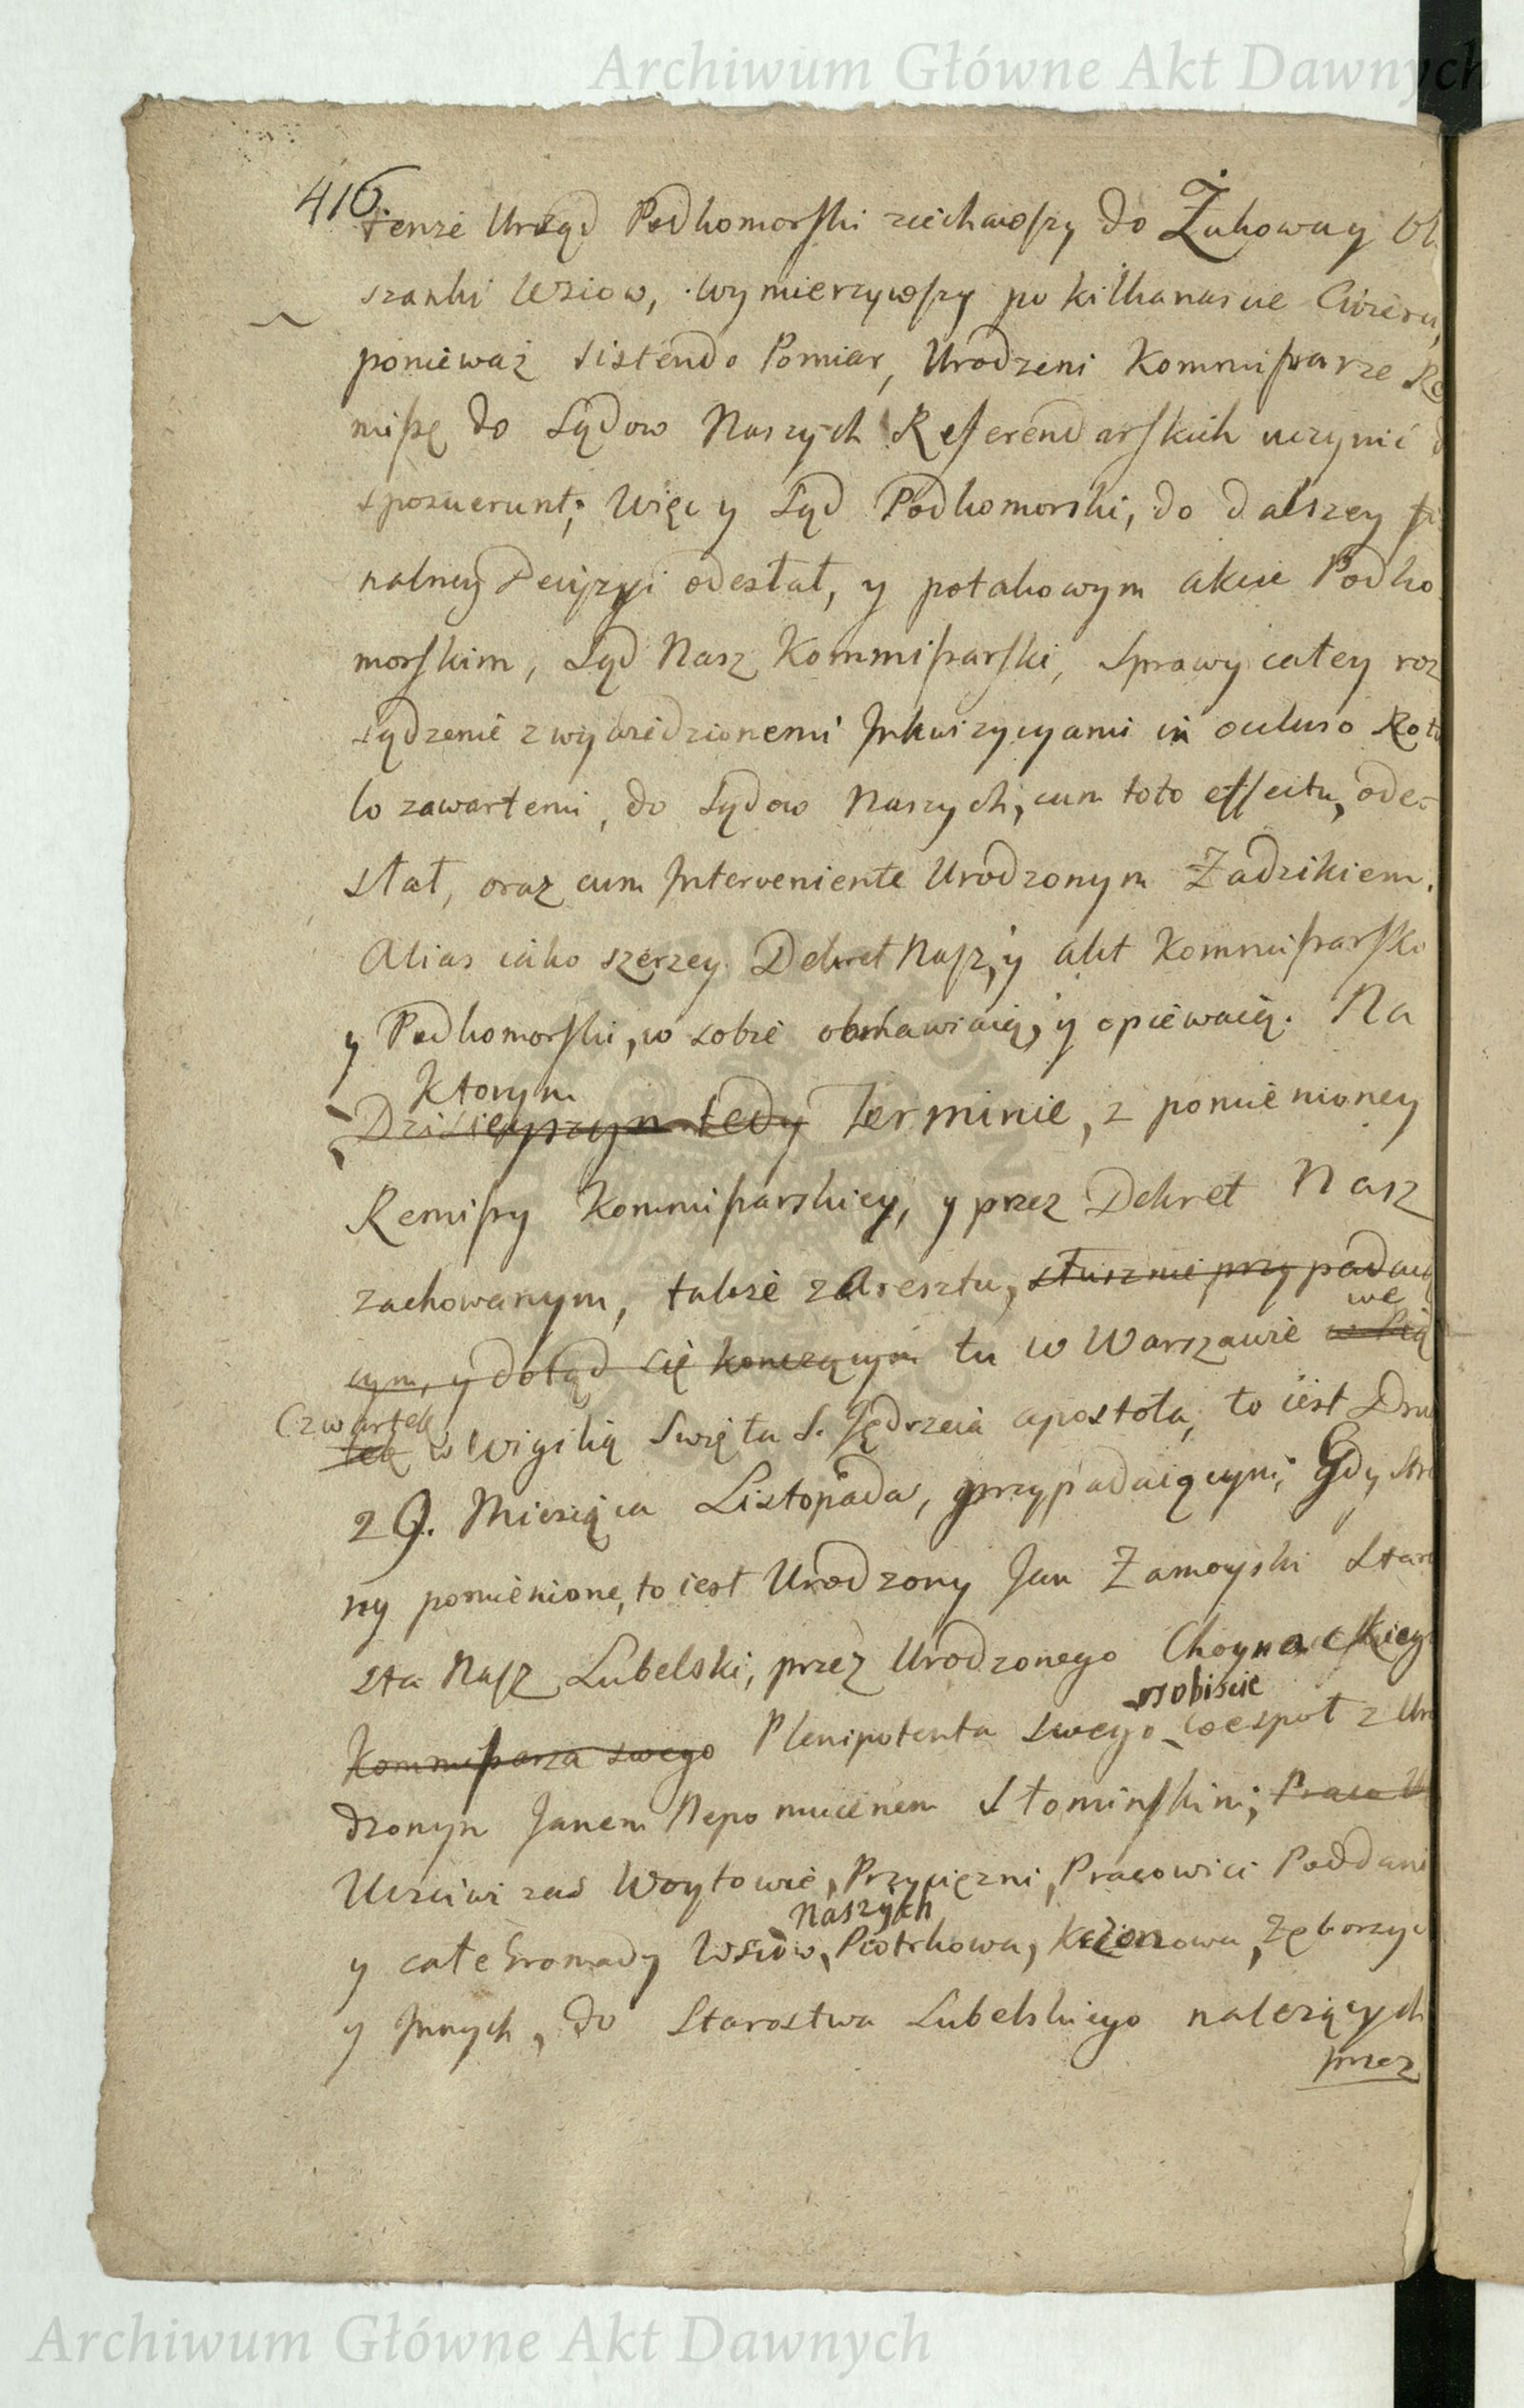 Archiwum Główne Akt Dawnych
416
tenże Urząd Podkomorski ziechawszy do Żukowa y Ol
szanki Wsiow, wymierzywszy po kilkanascie
ponieważ sistendo Pomiar, Urodzeni Kommissarze Re
missę do Sądow Naszych Referendarskich uczynić d
sposuerunt; Więc y Sąd Podkomorski, do dalszey fi
nalney Decyzyi odesłał, y po takowym akcie Podko
morskim, Sąd Nasz Kommissarski, Sprawy całey roz
sądzenie z wywiedzionemi Inkwizycyami in occluso Rotu
lo zawartemi, do Sądow Naszych, cum toto effectu, ode=
słał, oraz cum Interveniente Urodzonym Zadzikiem.
Alias iako szerzey Dekret Nasz, y akt Kommissarsko
y Podkomorski, w sobie obmawiaią, y opiewaią. Na
Ktorym
Dzisieyszym tedy Terminie, z pomienioney
Remissy Kommissarskiey, y przez Dekret Nasz
zachowanym, także z Aresztu, słusznie przypadaią
cym, y dotąd się konczącym tu w Warszawie
we
Czwartek
w Wigilią Swięta S. Jędrzeia apostoła, to iest Dnia
29. Miesiąca Listopada, przypadaiącym; Gdy Stro
ny pomienione, to iest Urodzony Jan Zamoyski Staro
sta Nasz Lubelski, przez Urodzonego Choynackiego
osobiscie
Kommissarza swego Plenipotenta swego wespoł z Uro
dzonym Janem Nepomucenem Słominskim;
Uczciwi zaś Woytowie, Przysięzni, Pracowici Poddani
Naszych
y całe Gromady Wsiow, Piotrkowa, Zęborzyc
y Innych, do Starostwa Lubelskiego należących
przez
Archiwum Główne Akt Dawnych